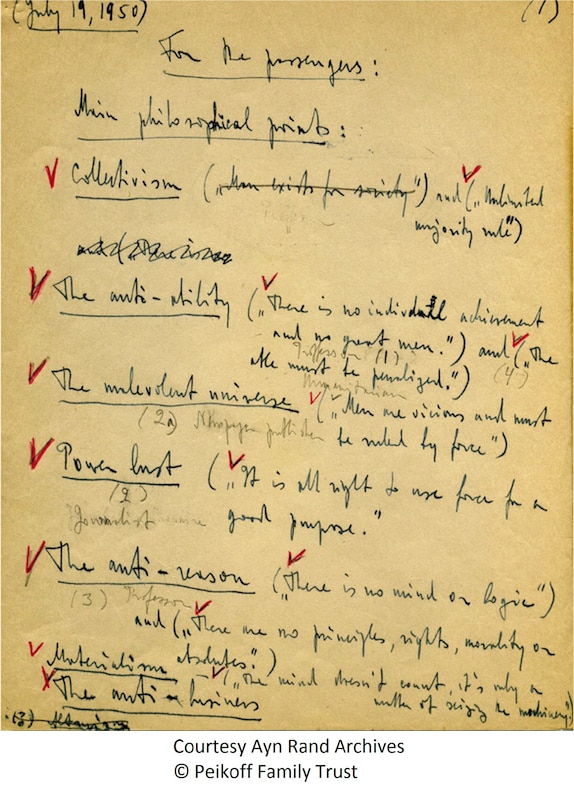 (July 19, 1950) (1)
For the passengers:
Main philosophical points:
Collectivism ("Man exists for society") and ("Unlimited
majority rule")
The anti-ability ("There is no individual achievement
and no great men.") and ("The
Professor (1)
able must be penalized.") (4)
Humanitarian
The malevolent universe ("Men are vicious and must
(2a) Newspaper publisher be ruled by force")
Power lust ("It is all right to use force for a
(2)
Journalist good purpose."
The anti-reason ("There is no mind or logic")
(3) Professor
and ("There are no principles, rights, morality or
absolutes.")
Materialism ("The mind doesn't count, it's only a
The anti-business matter of seizing the machinery")
(3)
Courtesy Ayn Rand Archives
© Peikoff Family Trust